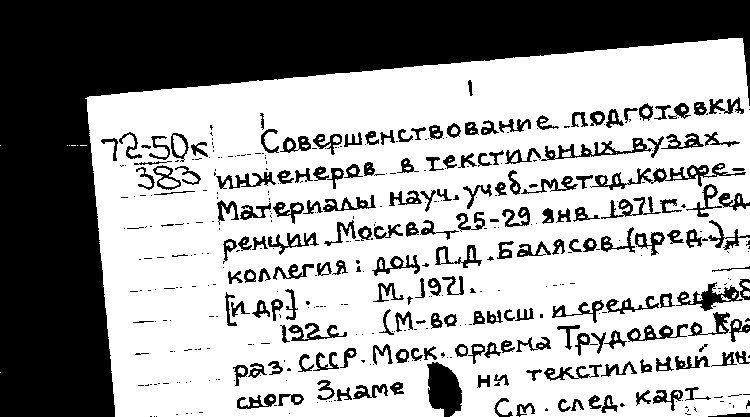 1
72-50к Совершенствование подготовки
383 инженеров в текстильных вузах.
Материалы науч. учеб.-метод. конфе=
ренции. Москва, 25-29 янв. 1971 г. [Ред.
коллегия: доц. П.Д. Балясов (пред.),
[и др]. М., 1971.
192 с. (М-во высш. и сред. спец. об
раз. СССР. Моск. ордена Трудового Кра
сного Знаме ни текстильный ин
См. след. карт.